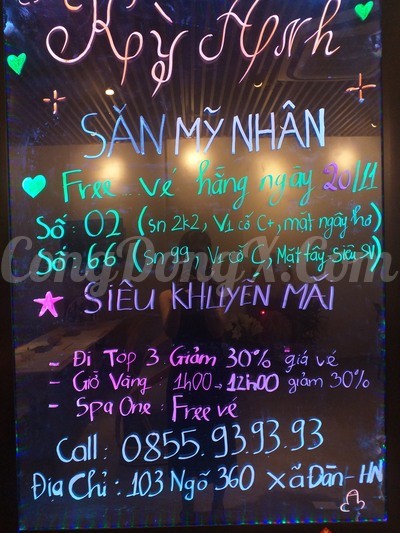 Kỳ Anh
SĂN MỸ NHÂN
Free vé hằng ngày 20/11
Số: 02 (sn 2k2, V1 cỡ C+, mặt ngây thơ)
Số: 66 (sn 99, V1 cỡ C, Mặt tây-Siêu SV)
CongDongX.Com
SIÊU KHUYẾN MÃI
- Đi Top 3 Giảm 30% giá vé
- Giờ Vàng: 1h00→12h00 giảm 30%
- Spa One: Free vé
Call: 0855.93.93.93
Địa Chỉ: 103 Ngõ 360 Xã Đàn-HN